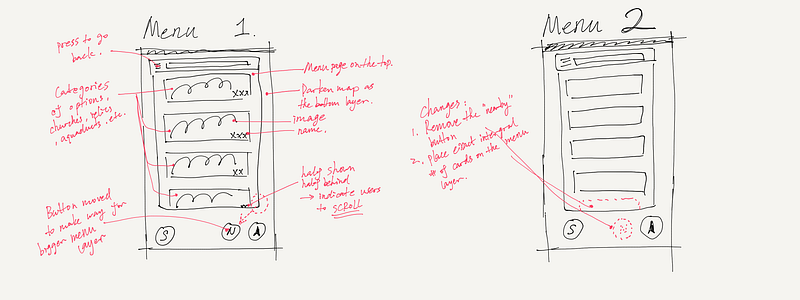 Menu 1.
press to go
back.
Categories
of options,
churches, relics
, aquaducts. etc.
Button moved
to make way for
bigger menu
layer
xxx
xxx
xx
S
N
A
Menu page on the top.
Darken map as
the bottom layer.
image
name.
half shown
half behind
→ indicate users
to SCROLL
Menu 2
Changes:
1. Remove the "nearby"
button
2. Place exact integral
# of cards on the menu
layer.
S
N
A